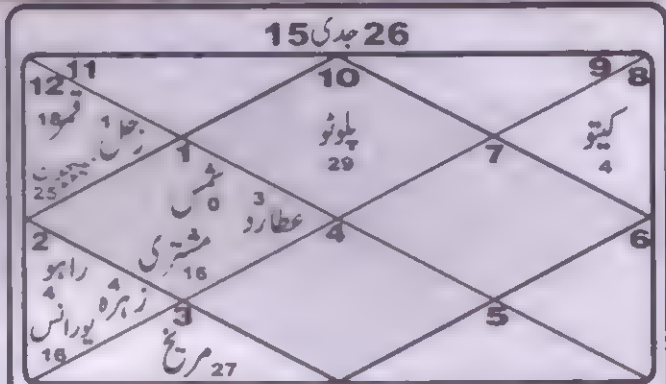 15 جدی 26
11
12
10
9
8
قمر
18
زحل
1
نیپچون
25
1
پلوٹو
29
7
کیتو
4
شمس
0
عطارد
3
مشتری
16
2
4
6
راہو
4
زہرہ
4
یورانس
16
3
مریخ
27
5